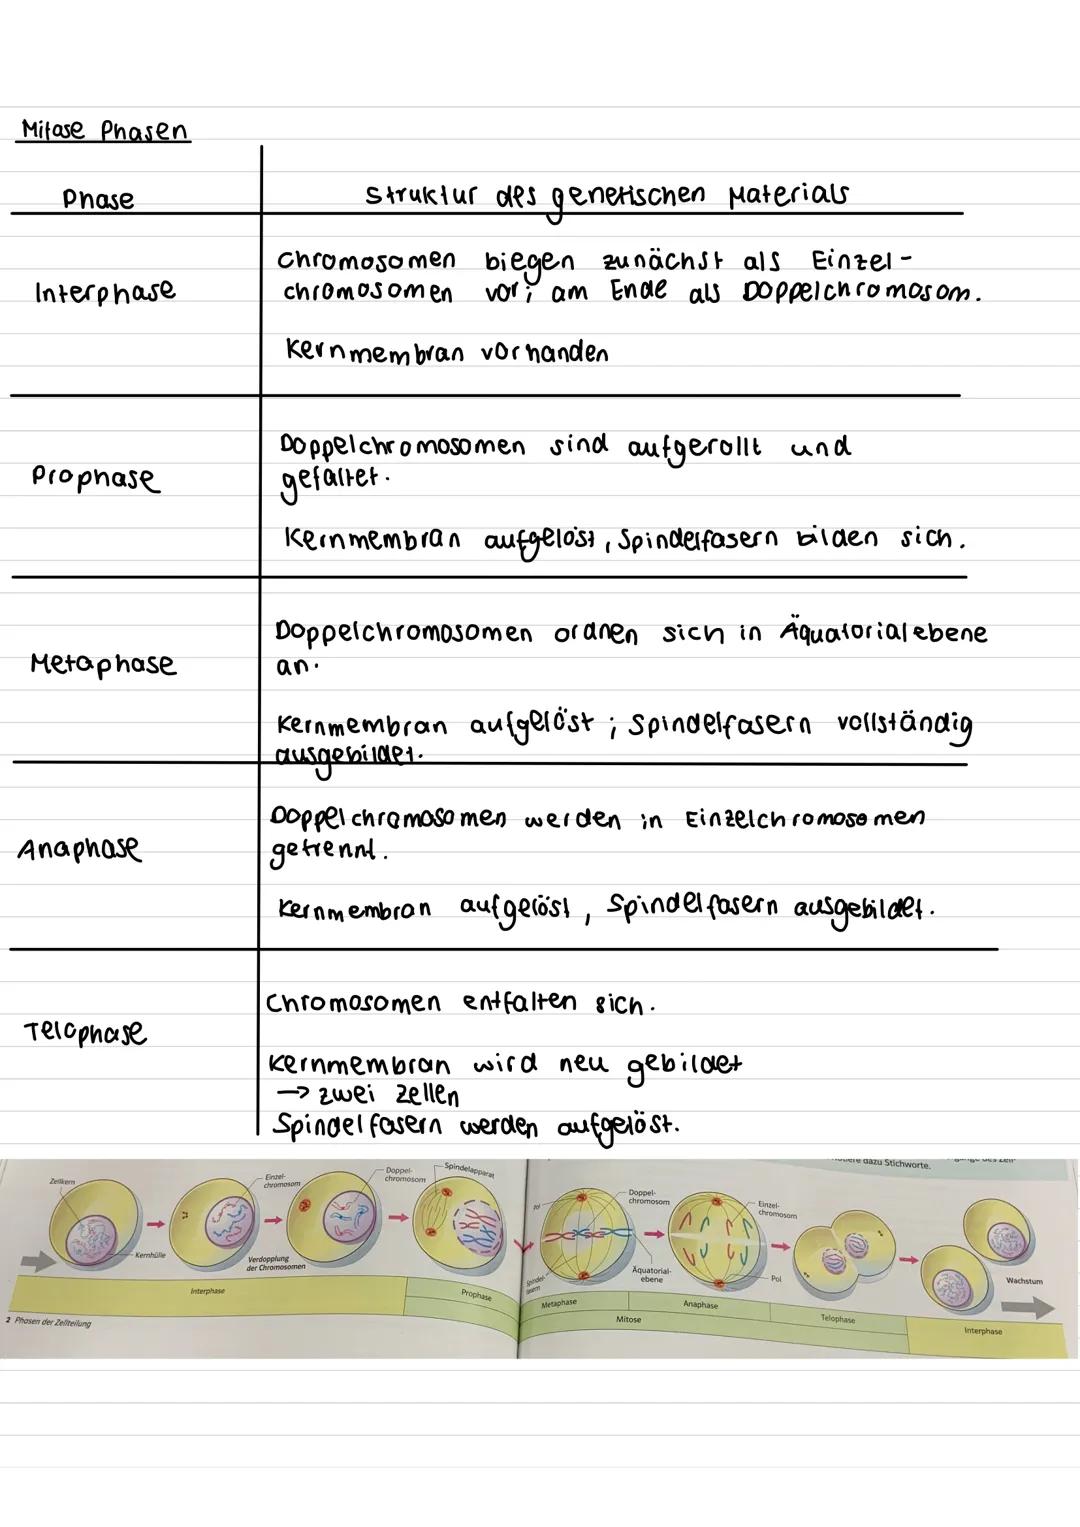 Mitose Phasen
Phase
Struktur des genetischen Materials
Interphase
Chromosomen biegen zunächst als Einzel-
chromosomen vor; am Ende als Doppelchromosom.
Kernmembran vorhanden
Prophase
Doppelchromosomen sind aufgerollt und
gefaltet.
Kernmembran aufgelöst, Spindelfasern bilden sich.
Metaphase
Doppelchromosomen ordnen sich in Äquatorialebene
an.
Kernmembran aufgelöst; Spindelfasern vollständig
ausgebildet.
Anaphase
Doppelchromosomen werden in Einzelchromosomen
getrennt.
Kernmembran aufgelöst, Spindelfasern ausgebildet.
Telophase
Chromosomen entfalten sich.
Kernmembran wird neu gebildet
→ zwei Zellen
Spindelfasern werden aufgelöst.
dazu Stichworte.
Zellkern
Kernhülle
Einzel-
chromosom
Verdopplung
der Chromosomen
Doppel-
chromosom
Spindelapparat
Interphase
Prophase
2 Phasen der Zellteilung
Pol
Spindel-
fasern
Doppel-
chromosom
Äquatorial-
ebene
Einzel-
chromosom
Pol
Wachstum
Metaphase
Anaphase
Telophase
Mitose
Interphase